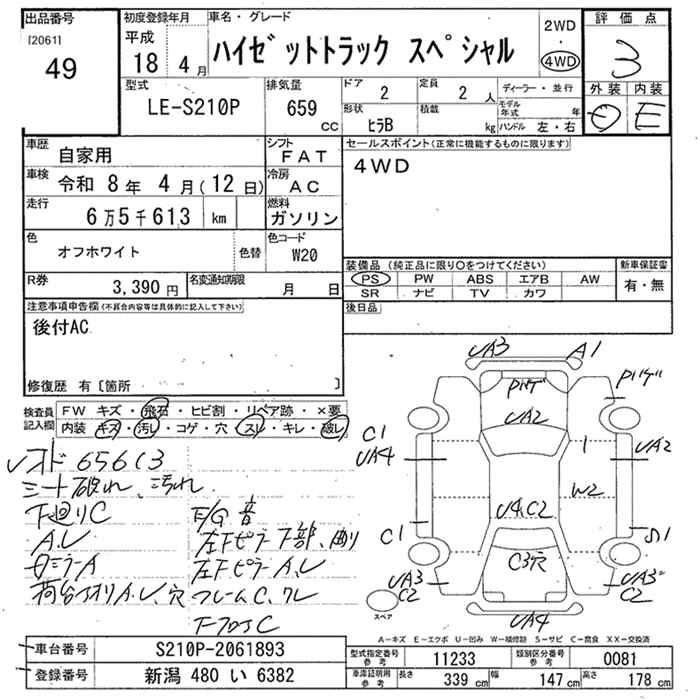 出品番号
[2061]
49
初度登録年月
平成
18 4月
車名・グレード
ハイゼットトラック スペシャル
2WD
・
4WD
評価点
3
外装 内装
E
型式
LE-S210P
排気量
659
CC
ドア
2
定員
2 人
形状
ヒラB
積載
kg
ディーラー・並行
モデル年式 年
ハンドル 左・右
車歴
自家用
シフト
FAT
車検
令和 8年 4月(12日)
冷房
AC
走行
6万5千613 km
燃料
ガソリン
色
オフホワイト
色替
色コード
W20
R券
3,390 円
名変通知期限
月 日
セールスポイント(正常に機能するものに限ります)
4WD
装備品 (純正品に限り○をつけてください)
PS PW ABS エアB AW
SR ナビ TV カワ
新車保証書
有・無
後日品
注意事項申告欄(不具合内容等は具体的に記入して下さい)
後付AC
修復歴 有〔箇所 〕
検査員記入欄
FW キズ・飛石・ヒビ割・リペア跡・×要
内装 キズ・汚レ・コゲ・穴・スレ・キレ・破レ
65613
シート破れ、汚れ
下廻りC
F/G 音
A.レ
左Fピラー下部、曲リ
左Fピラー A.レ
荷台アオリ A.レ、穴
フレームC、クレ
UA3 A1
UA2
C1
UA4
1
UA2
W2
U4.C2
C1
S1
C3穴
UA3
C2
UA3
C2
スペア
UA4
A−キズ E−エクボ U−凹み W−補修跡 S−サビ C−腐食 XX−交換済
車台番号
S210P-2061893
登録番号
新潟 480 い 6382
型式指定番号
参考
11233
類別区分番号
参考
0081
車庫証明用
参考
長さ 339 cm 幅 147 cm 高さ 178 cm